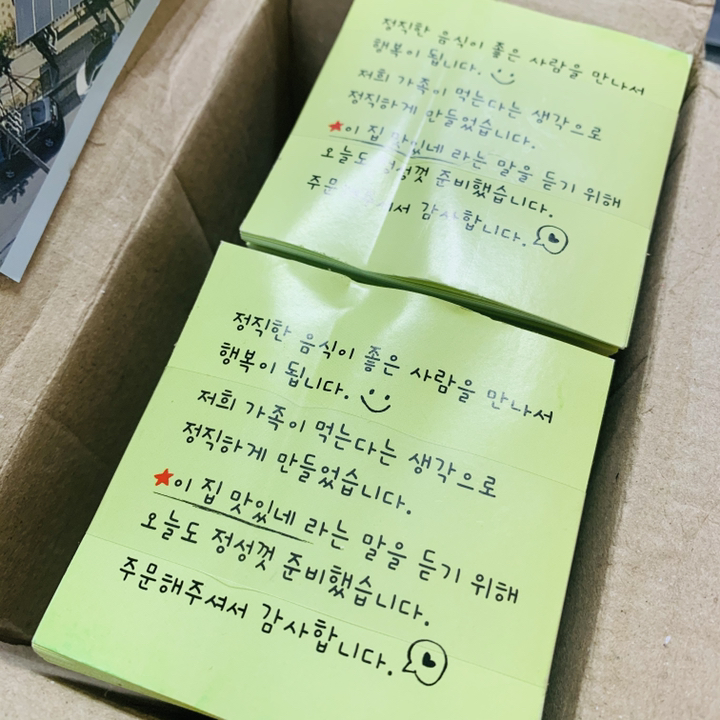 정직한 음식이 좋은 사람을 만나서
행복이 됩니다.
저희 가족이 먹는다는 생각으로
정직하게 만들었습니다.
★이 집 맛있네 라는 말을 듣기 위해
오늘도 정성껏 준비했습니다.
주문해주셔서 감사합니다.
정직한 음식이 좋은 사람을 만나서
행복이 됩니다.
저희 가족이 먹는다는 생각으로
정직하게 만들었습니다.
★이 집 맛있네 라는 말을 듣기 위해
오늘도 정성껏 준비했습니다.
주문해주셔서 감사합니다.